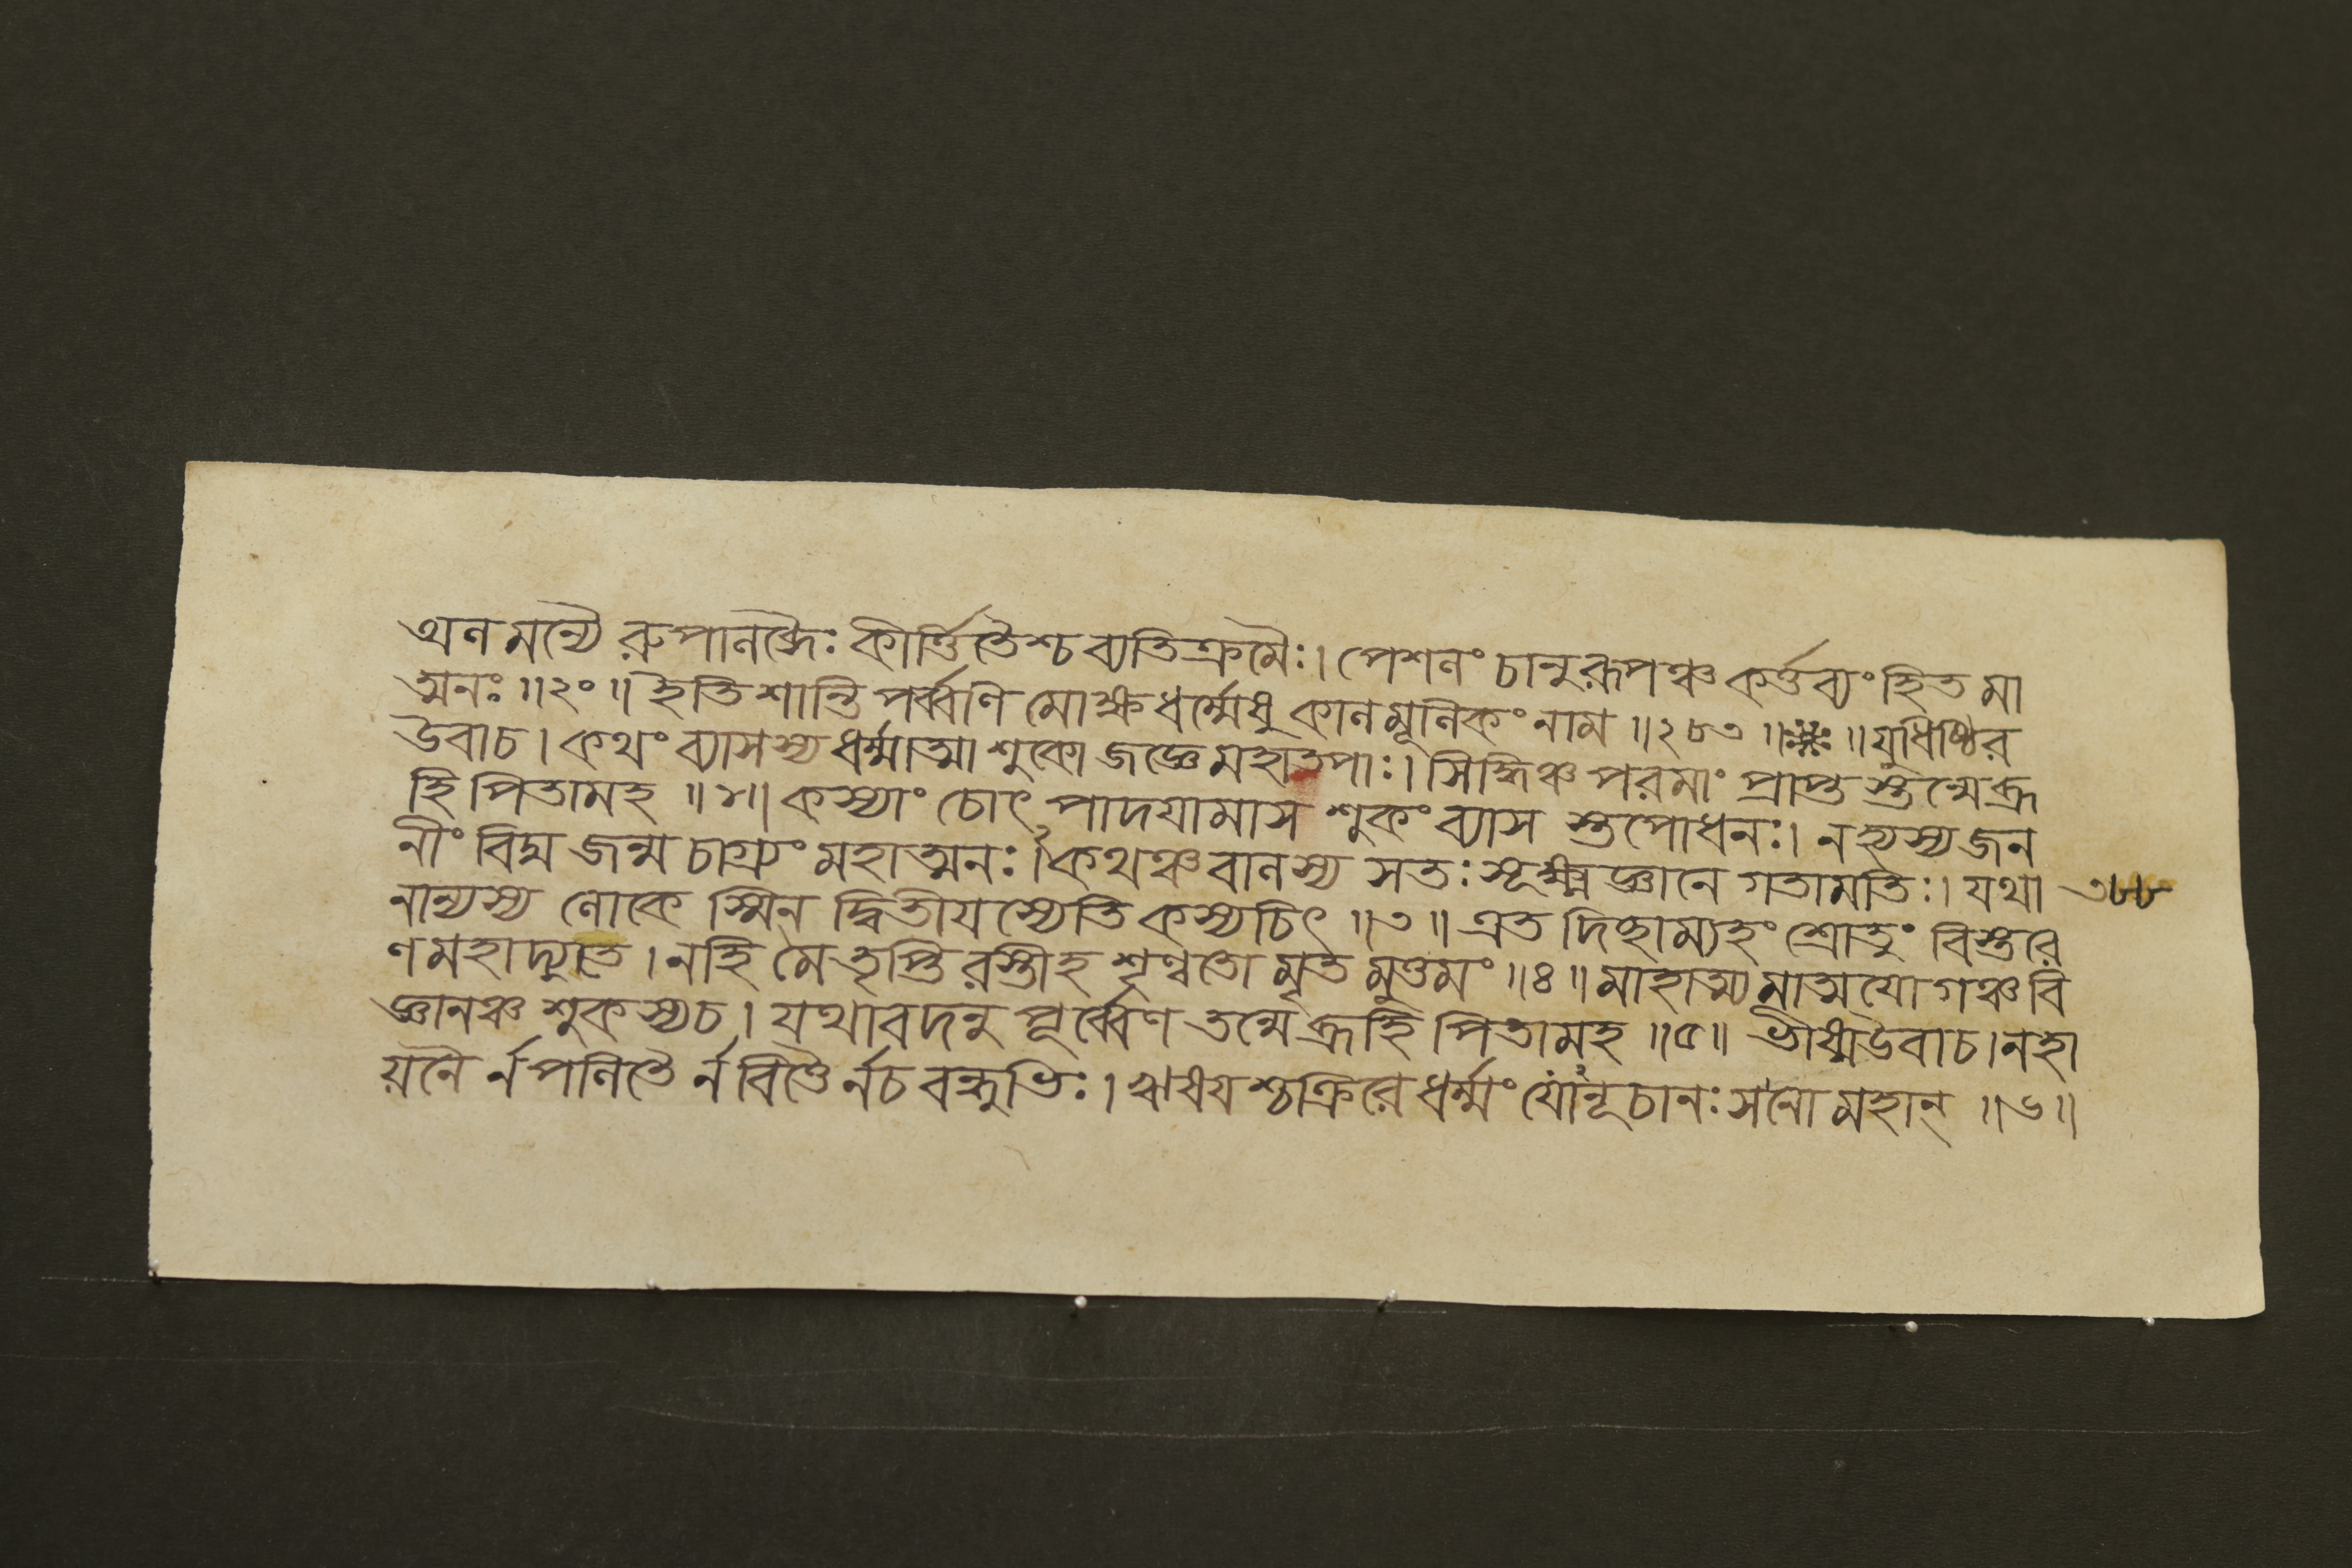 অনমন্যৈ রুপানব্ধৈঃ কীর্ত্তিতৈশ্চ ব্যতিক্রমৈঃ। পেশনং চানুরূপঞ্চ কর্ত্তব্যং হিত মা
ত্মনঃ ॥২০॥ ইতি শান্তি পর্ব্বণি মোক্ষধর্ম্মেষু কানমূনিকং নাম ॥২৮৩॥ ॥যুধিষ্ঠির
উবাচ। কথং ব্যাসস্য ধর্ম্মাত্মা শুকো জজ্ঞে মহাতপাঃ। সিদ্ধিঞ্চ পরমাং প্রাপ্ত স্তন্মে ব্রূ
হি পিতামহ ॥১॥ কস্যাং চোৎপাদয়ামাস শুকং ব্যাস স্তপোধনঃ। নহ্যস্য জন
নীং বিদ্ম জন্ম চাগ্র্যং মহাত্মনঃ।২ কথঞ্চ বানস্য সতঃ সূক্ষ্মজ্ঞানে গতামতিঃ। যথা ৩৮৮
নান্যস্য ণোকে স্মিন দ্বিতীয়স্যেতি কস্যচিৎ ॥৩॥ এত দিছাম্যহং শ্রোতুং বিস্তরে
ণ মহাদ্যুতে। নহি মে তৃপ্তি রস্তীহ শৃণ্বতো মৃত মুত্তমং ॥৪॥ মাহাত্ম্য মাত্মযোগঞ্চ বি
জ্ঞানঞ্চ শুকস্যচ। যথাবদনু পূর্ব্বেণ তন্মে ব্রূহি পিতামহ ॥৫॥ ভীষ্মউবাচ। নহা
য়নৈ র্ন পনিতৈ র্ন বিত্তৈ র্নচ বন্ধুভিঃ। ঋষয়শ্চক্রিরে ধর্ম্মং যোনূচানঃ সনো মহান্ ॥৬॥